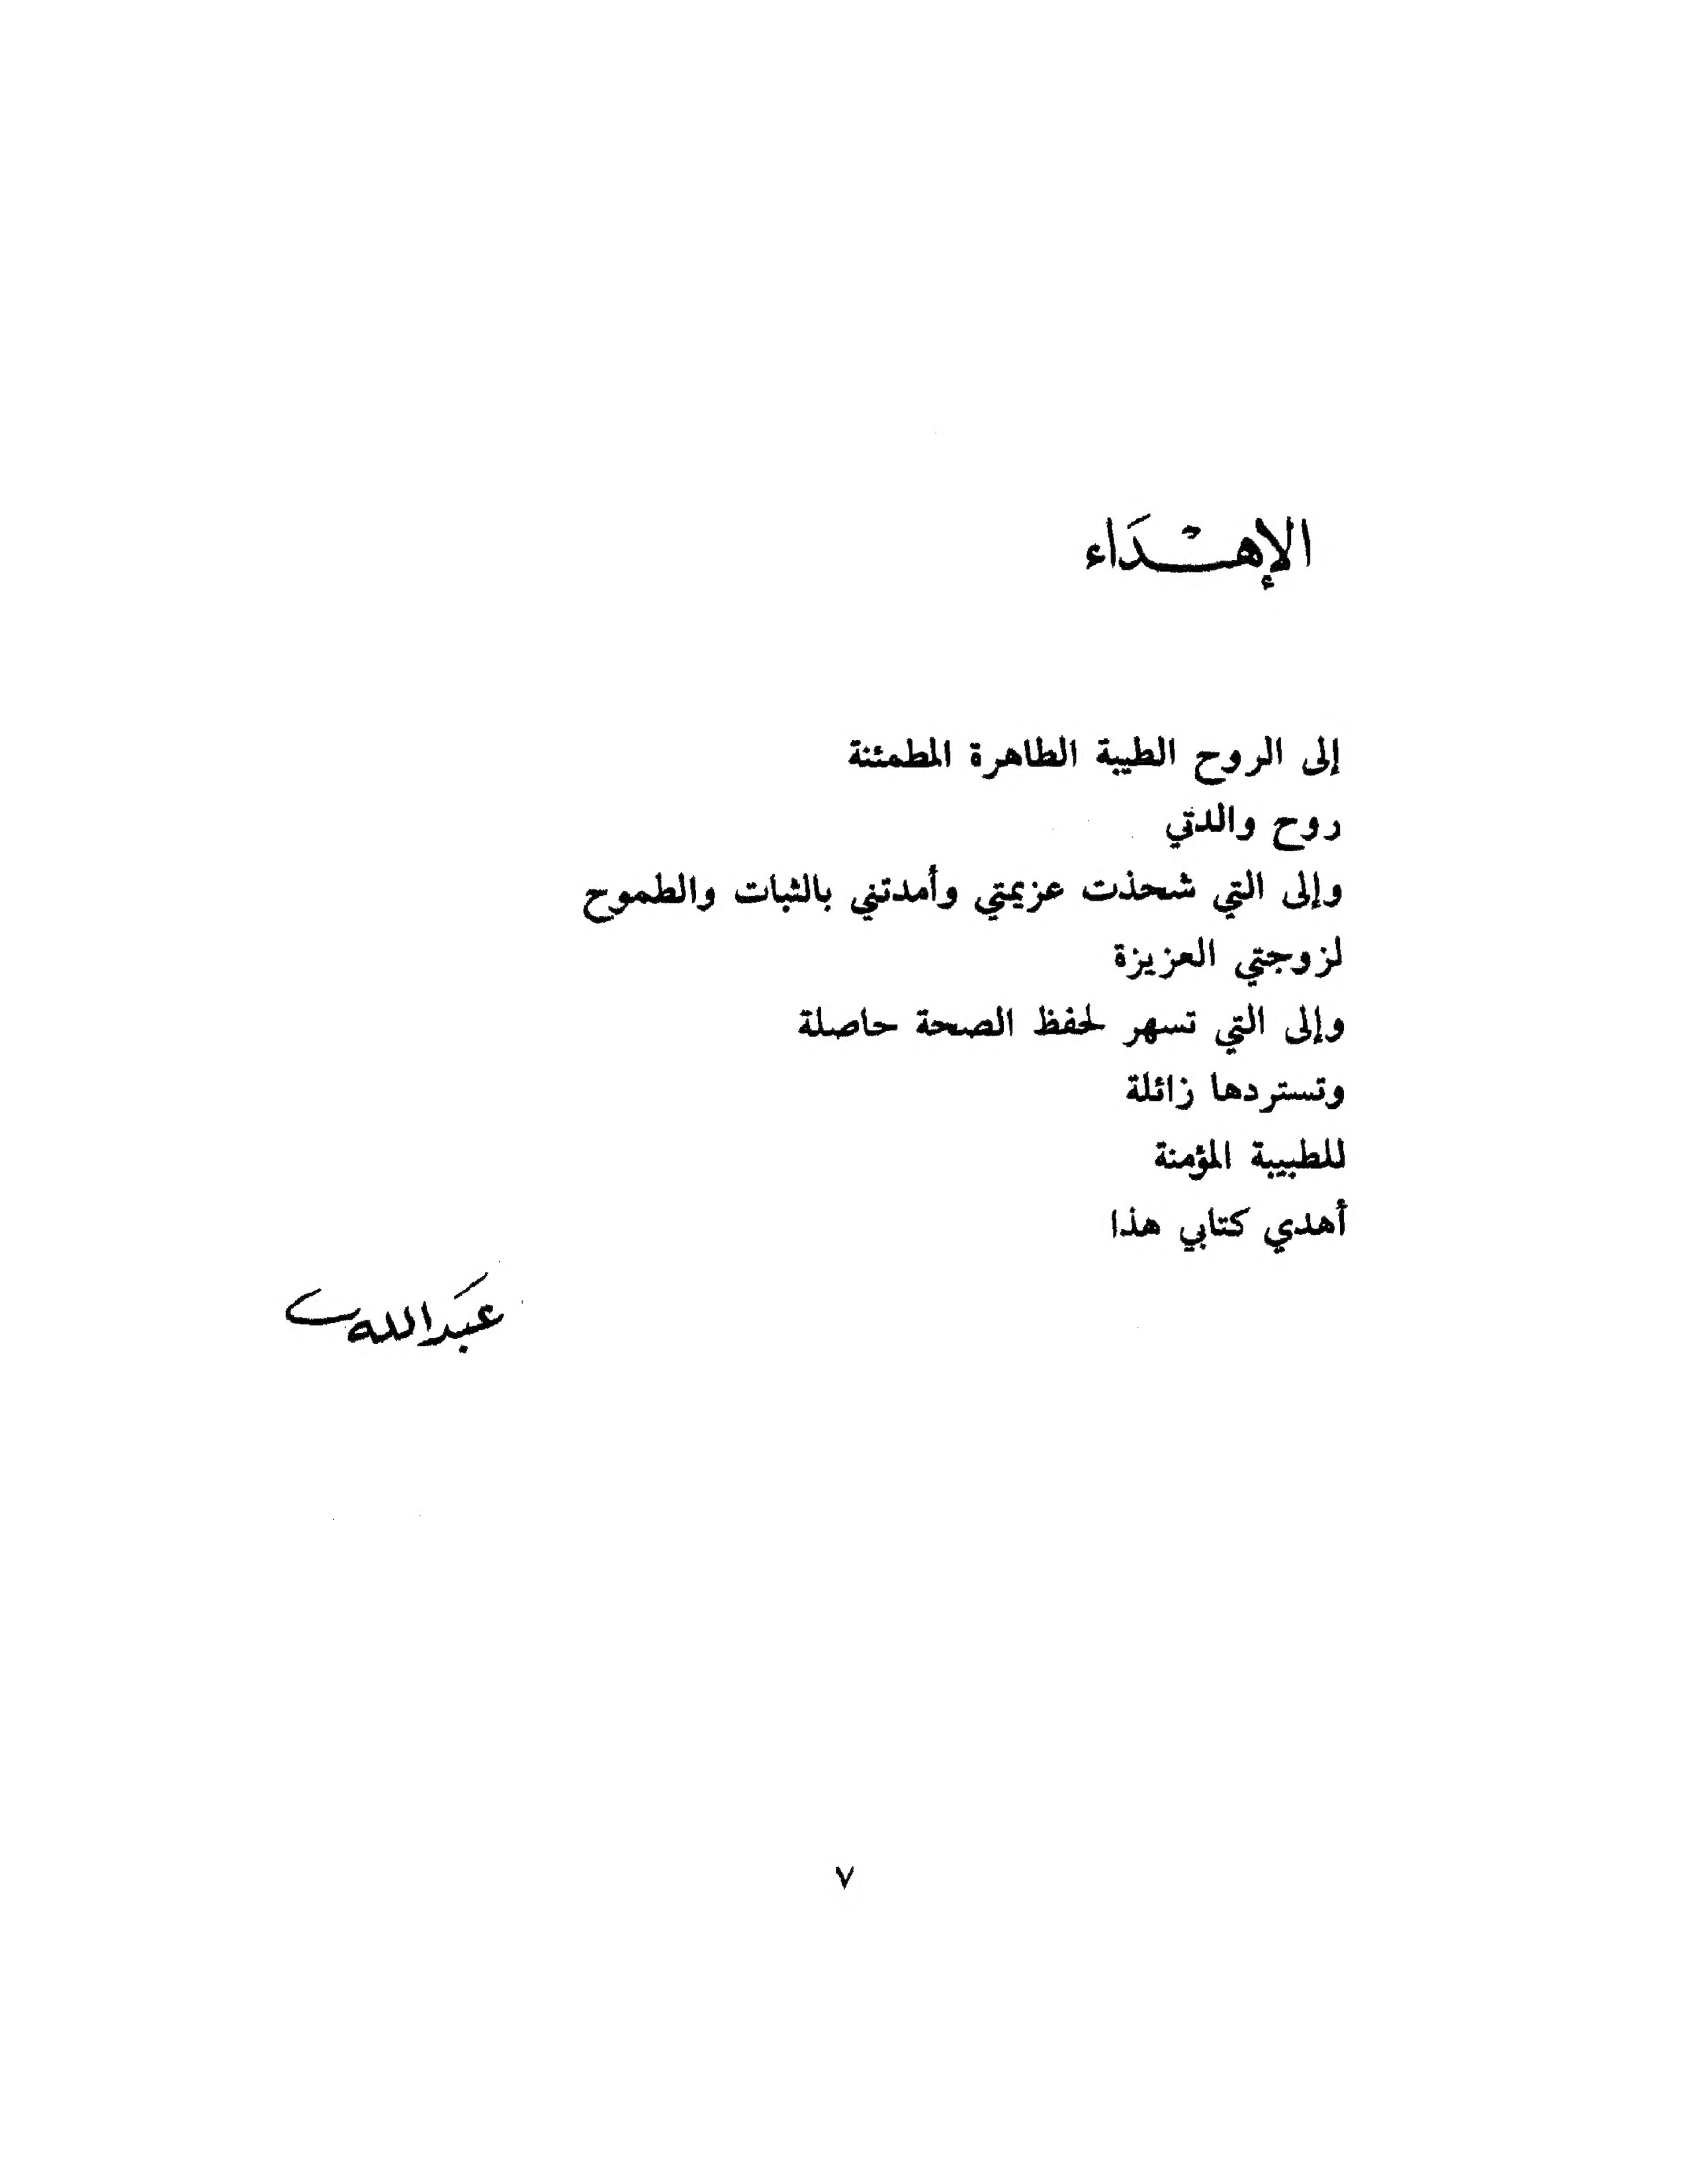 الإهْدَاء
إلى الروح الطيبة الطاهرة المطمئنة
روح والدتي
وإلى التي شحذت عزيمتي وأمدتني بالثبات والطموح
لزوجتي العزيزة
وإلى التي تسهر لحفظ الصحة حاصلة
وتستردها زائلة
للطبيبة المؤمنة
أهدي كتابي هذا
عَبدالله
٧